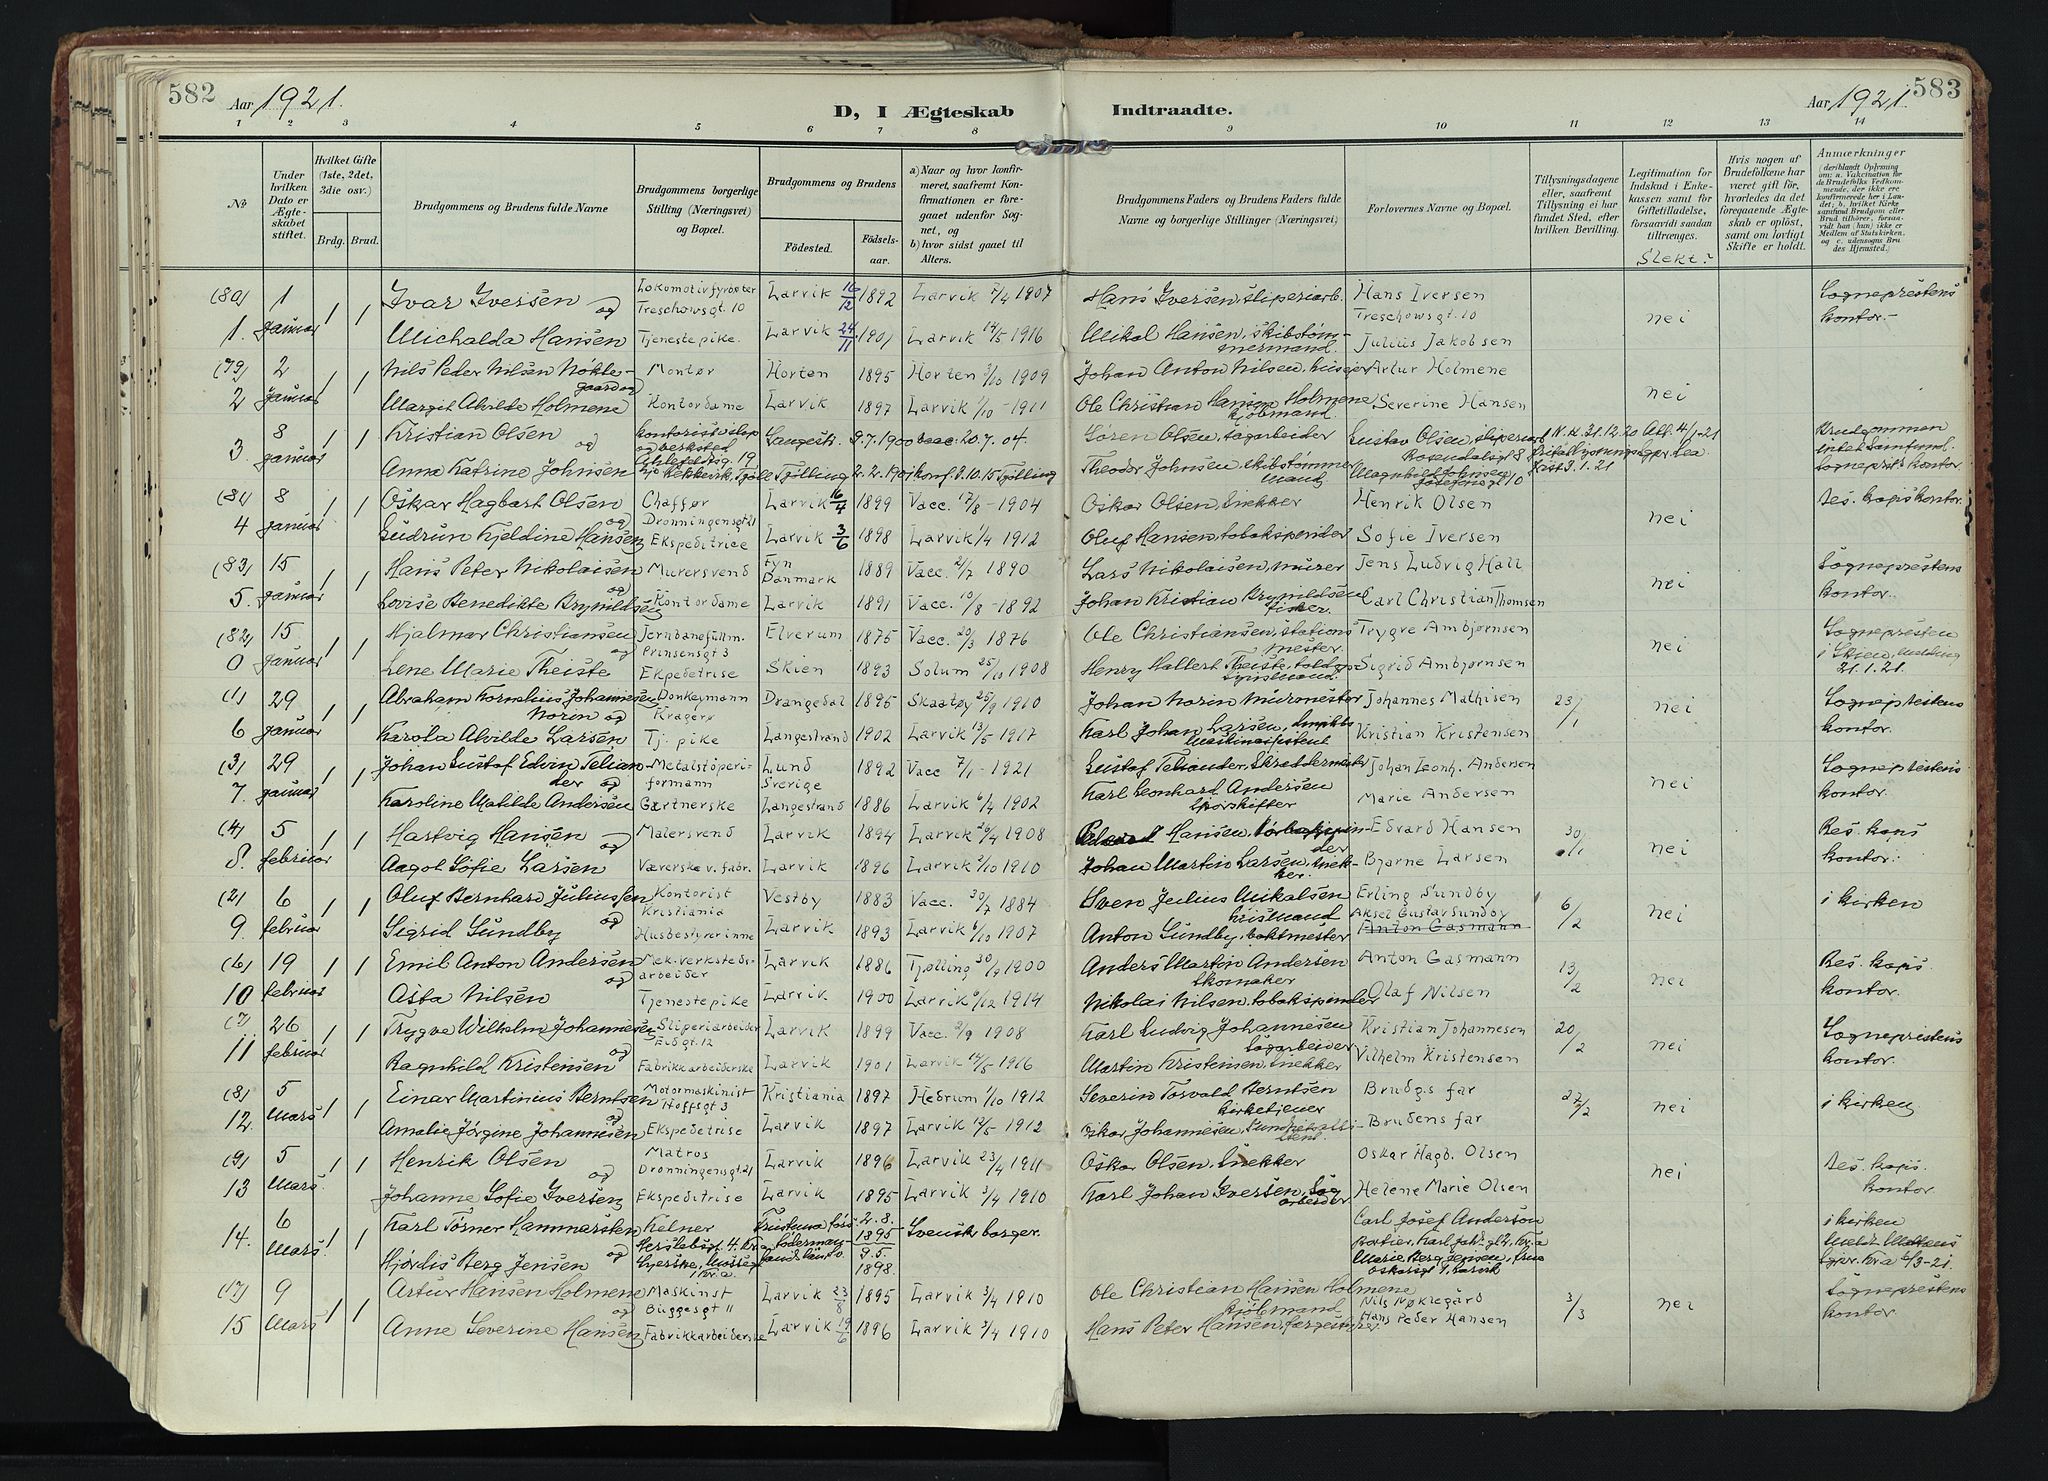 582
Aar 1921.
D, I Ægteskab
Indtraadte.
Aar 1921.
583
1 2 3 4 5 6 7 8 9 10 11 12 13 14
№
Under hvilken Dato er Ægteskabet stiftet.
Hvilket Gifte (1ste, 2det, 3die osv.)
Brdg. Brud.
Brudgommens og Brudens fulde Navne
Brudgommens borgerlige Stilling (Næringsvei) og Bopæl.
Brudgommens og Brudens
Födested.
Födselsaar.
a) Naar og hvor konfirmeret, saafremt Konfirmationen er foregaaet udenfor Sognet, og
b) hvor sidst gaaet til Alters.
Brudgommens Faders og Brudens Faders fulde Navne og borgerlige Stillinger (Næringsvei)
Forlovernes Navne og Bopæl.
Tillysningsdagene eller, saafremt Tillysning ei har fundet Sted, efter hvilken Bevilling.
Legitimation for Indskud i Enkekassen samt for Giftetilladelse, forsaavidt saadan tiltrænges.
Slekt?
Hvis nogen af Brudefolkene har været gift för, hvorledes da det foregaaende Ægteskab er oplöst, samt om lovligt Skifte er holdt.
Anmærkninger
(deriblandt Oplysning om: a. Vakcination for de Brudefolks Vedkommende, der ikke ere konfirmerede her i Landet; b. hvilket Kirkesamfund Brudgom eller Brud tilhörer, forsaavidt han (hun) ikke er Medlem af Statskirken, og c. udensogns Brudes Hjemsted.)
(80) 1 1 1 Ivar Iversen og Lokomotivfyrbøter Treschowsgt. 10 Larvik 10/12 1892 Larvik 7/4 1907 Hans Iversen, sliperiarb. Hans Iversen Treschowsgt. 10 nei Sogneprestens kontor.-
1. januar Michalda Hansen Tjenestepike. Larvik 24/11 1901 Larvik 14/5 1916 Mikal Hansen, skibstømmermand. Julius Jakobsen
(79) 2 1 1 Nils Peder Nilsen Nøklegaard og Montør Horten 1895 Horten 3/10 1909 Johan Anton Nilsen, Artur Holmene nei
2 januar Margit Alvilde Holmene Kontordame Larvik 1897 Larvik 1/10-1911 Ole Christian Hansen Holmene kjøbmand. Severine Hansen
8 1 1 Kristian Olsen og kontorist slip og verksted 19 Langestr. 9.7.1900 vacc. 20.7.04. Søren Olsen, sagarbeider Gustav Olsen, sliperiarb Rosendalsgt 8 31.12.20 Att. 4/1-21 Brudgommen intet Samfund.
3 januar Anna Katrine Johnsen Tjølling 2.2.1901 konf. 3.10.15 Tjølling Theodor Johnsen, skibstømmermand Magnhild Johnsen, 10 3.1.21 Sogneprts kontor.
(81) 8 1 1 Oskar Hagbart Olsen og Chaffør Dronningensgt 21 Larvik 16/4 1899 Vacc. 17/8-1904 Oskar Olsen, snekker Henrik Olsen nei Res. kapis kontor.
4 januar Gudrun Kjeldine Hansen Ekspeditrice Larvik 3/6 1898 Larvik 1/4 1912 Oluf Hansen, tobakspinder Sofie Iversen
(83) 15 1 1 Hans Peter Nikolaisen og Murersvend Fyn Danmark 1889 Vacc. 2/7 1890 Lars Nikolaisen, murer Jens Ludvig Hall nei Sogneprestens kontor.
5. januar Lovise Benedikte Brynildsen Kontordame Larvik 1891 Vacc. 10/8-1892 Johan Kristian Brynildsen fisker. Carl Christian Thomsen
(82) 15 1 1 Hjalmar Christiansen og Jernbanefullm. Prinsensgt 3 Elverum 1875 Vacc. 20/3 1876 Ole Christiansen, stationsmester. Trygve Ambjørnsen nei Sognepresten i Skien, melding 21.1.21.
0 januar Lene Marie Theiste Ekpeditrise Skien 1893 Solum 25/10 1908 Henry Hallert Theiste, Sigrid Ambjørnsen
(1) 29 1 1 Abraham Kornelius Johannesen Norin og Donkeymann Kragerø Drangedal 1895 Skaatøy 25/9 1910 Johan Norin murmester Johannes Mathisen 23/1 nei Sogneprestens kontor.
6 januar Karola Alvilde Larsen Tj. pike Langestrand 1902 Larvik 13/5 1917 Karl Johan Larsen, maskinassistent Kristian Kristensen
(3) 29 1 1 Johan Gustaf Edvin Teliander og Metalstøperiformann Lund Sverige 1892 Vacc 7/1-1921 Gustaf Teliander, Skreddermester Johan Leonh. Andersen nei Sogneprestens kontor.
7. januar Karoline Matilde Andersen Gartnerske Langestrand 1886 Larvik 6/4 1902 Karl Leonhard Andersen sporskifter Marie Andersen
(4) 5 1 1 Hartvig Hansen og Malersvend Larvik 1894 Larvik 29/4 1908 Hansen, Edvard Hansen 30/1 nei Res. kaps kontor.
8. februar Aagot Sofie Larsen Væverske v. fabr. Larvik 1896 Larvik 3/10 1910 Johan Martin Larsen, snekker. Bjarne Larsen
(2) 6 1 1 Oluf Bernhard Juliussen og Kontorist Kristiania Vestby 1883 Vacc. 30/7 1884 Sven Julius Mikalsen Erling Sundby Aksel Gustav Sundby 6/2 nei i kirken
9. februar Sigrid Sundby Husbestyrerinne Larvik 1893 Larvik 6/10 1907 Anton Sundby, Anton Gasmann
(6) 19 1 1 Emil Anton Andersen og Mek. verkstedsarbeider Larvik 1886 Tjølling 30/9 1900 Anders Martin Andersen skomaker Anton Gasmann 13/2 nei Res. kapis. kontor.
10 februar Asta Nilsen Tjenestepike Larvik 1900 Larvik 6/12 1914 Nikolai Nilsen, tobakspinder Olaf Nilsen
(7) 26 1 1 Trygve Wilhelm Johannesen og Sliperiarbeider Eidsgt. 12 Larvik 1899 Vacc. 2/9 1908 Karl Ludvig Johannesen Sagarbeider Kristian Johannesen 20/2 nei Sogneprestens kontor.
11 februar Ragnhild Kristensen Fabrikkarbeiderske Larvik 1901 Larvik 14/5 1916 Martin Kristensen, snekker Vilhelm Kristensen
(8) 5 1 1 Einar Martinius Berntsen og Motormaskinist Hoffsgt 3 Kristiania 1897 Hedrum 1/10 1912 Severin Torvald Berntsen kirketjener Brudgs far 27/2 nei i kirken
12. Mars Amalie Jørgine Johannesen Ekspedetrise Larvik 1897 Larvik 12/5-1912 Johannesen, Brudens far
(9) 5 1 1 Henrik Olsen og Matros Dronningensgt. 21 Larvik 1896 Larvik 23/4 1911 Oskar Olsen, snekker Oskar Hagb. Olsen nei Res. kaps. kontor.
13 Mars. Johanne Sofie Iversen Ekspeditrise Larvik 1895 Larvik 3/4 1910 Karl Johan Iversen, Sagarbeider Helene Marie Olsen
6 1 1 Karl Tørner Hammarsten og Kelner Herslebsgt. 4. Kr.a 2.8. 1895 Svensk borger. Carl Josef Anderson Portier, Karl Joh. gt 2. Kr.a i kirken
14. Mars Hjørdis Berg Jensen 9.5. 1898. Marie Berg Jensen, frue Oskarsgt 9, Larvik Kr.a 4/3-21.
(17) 9 1 1 Artur Hansen Holmene og Maskinst Buggesgt 11 Larvik 23/8 1895 Larvik 3/4 1910 Ole Christian Hansen Holmene kjøbmand Nils Nøklegård 3/3 nei Sogneprestens kontor.
15 Mars Anne Severine Hansen Fabrikkarbeiderske Larvik 19/6 1896 Larvik 3/4 1910 Hans Peter Hansen, Hans Peder Hansen